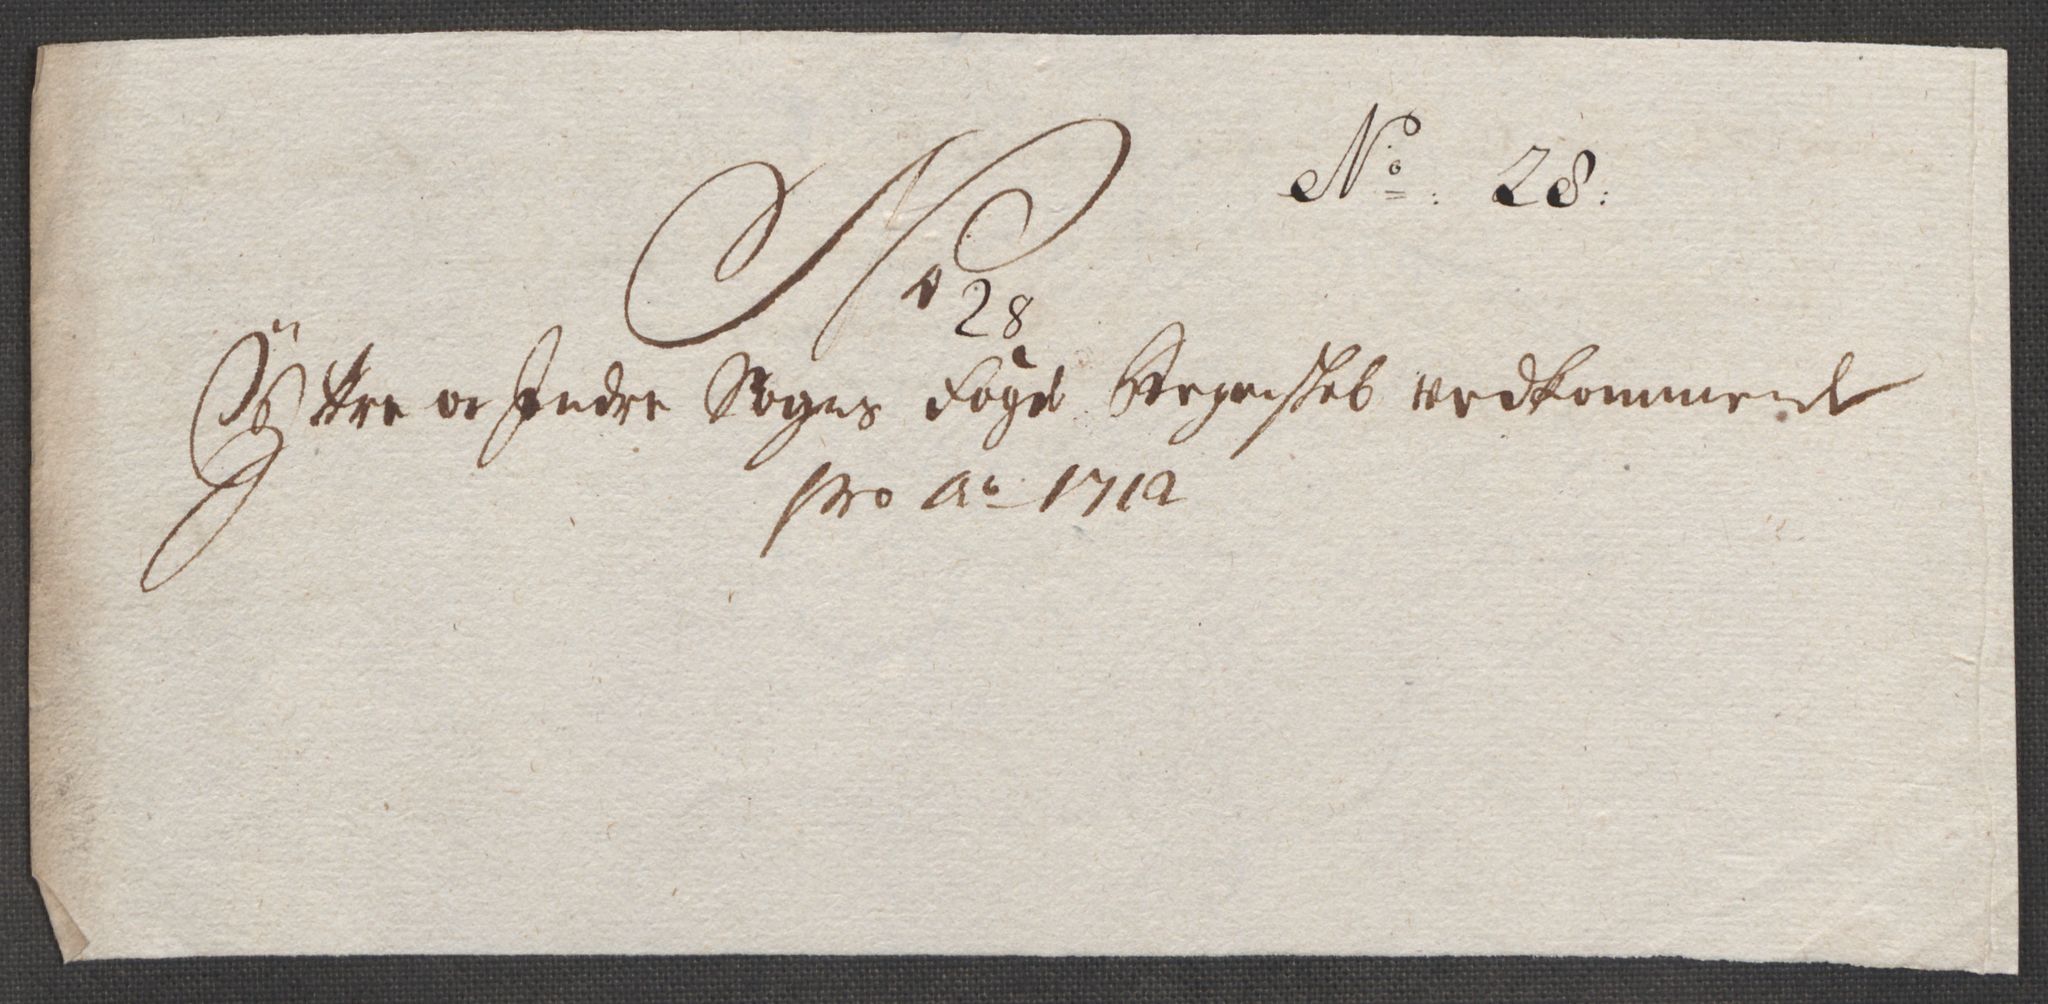 No. 28.
No 28
Ÿttre oc Indre Sogns Fogd Regnskab vedkommende
pro Ao 1712